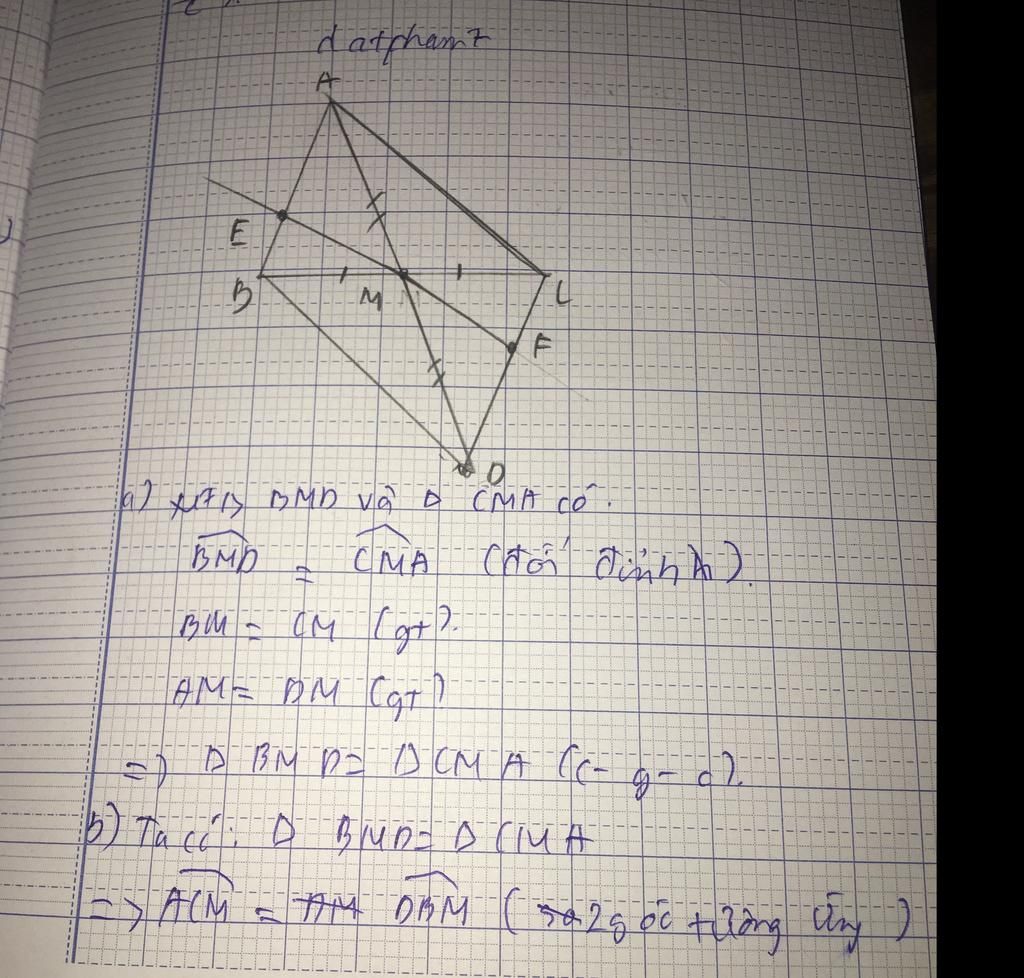 datpham7
A
E
B
M
C
F
D
a) xét Δ BMD và Δ CMA có.
BMD = CMA (đối đỉnh).
BM = CM (gt).
AM = DM (gt)
=> Δ BMD = Δ CMA (c-g-c).
b) Ta có: Δ BMD = Δ CMA
=> ACM = DBM (2 góc tương ứng)